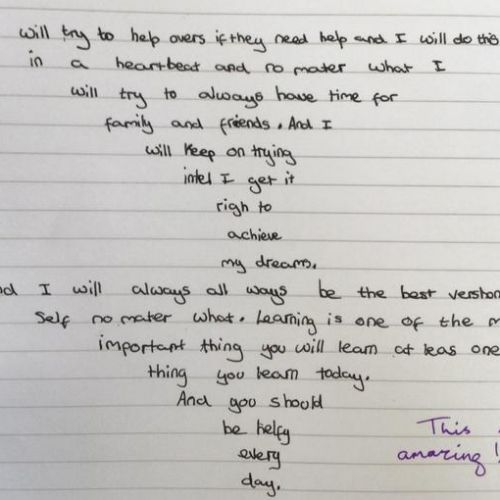 will try to help overs if they need help and I will do this
in a heartbeat and no mater what I
will try to always have time for
family and friends. And I
will keep on trying
intel I get it
righ to
achieve
my dreams.
I will always all ways be the best version
Self no mater what. Learning is one of the
important thing you will learn at leas one
thing you learn today.
And you should
be helfy
every
day.
This
amazing!